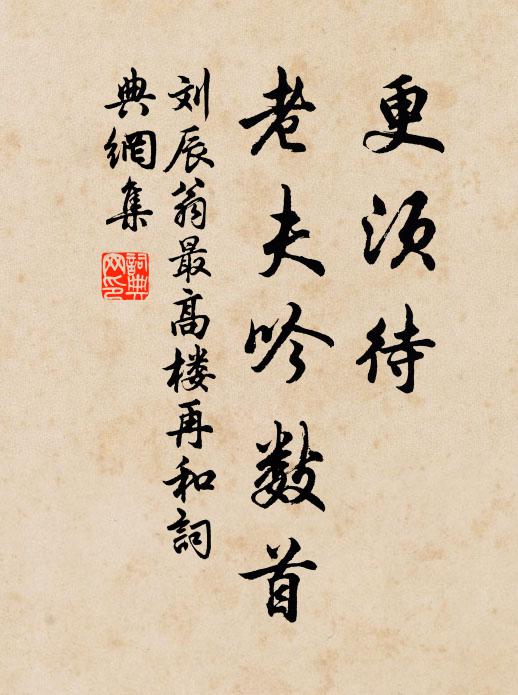 更须待
老夫吟数首
刘辰翁最高楼再和詞
典網集
詞典网印